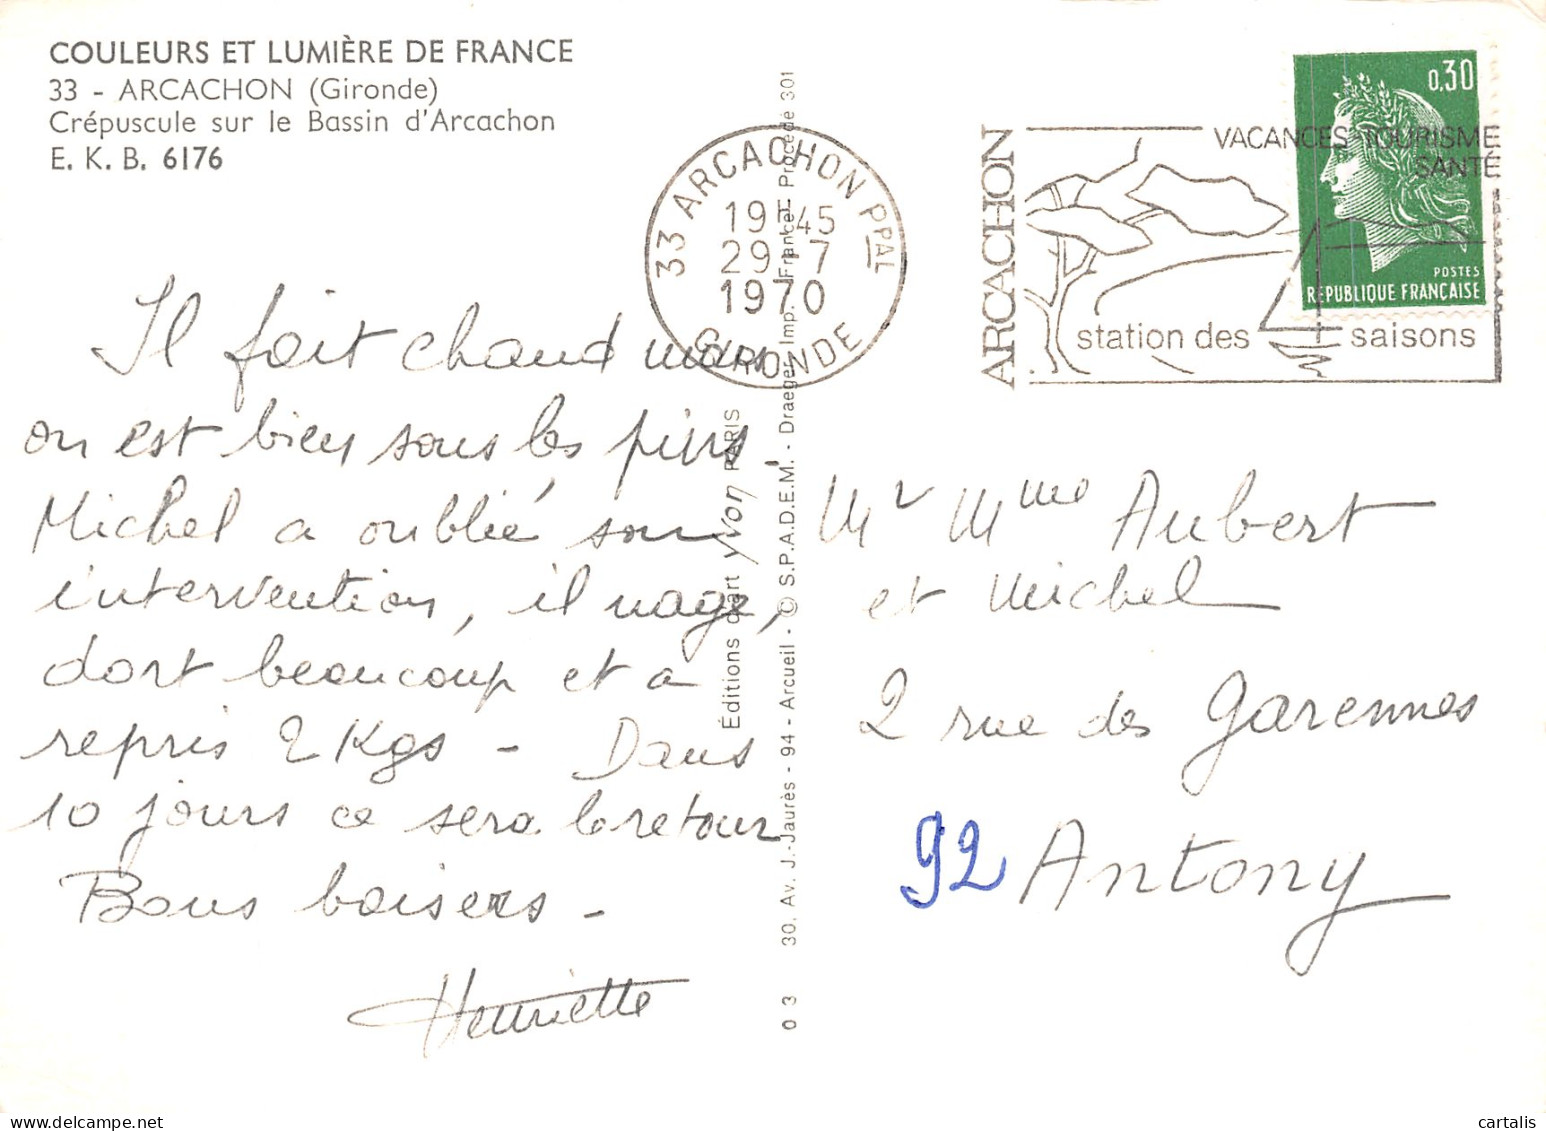 COULEURS ET LUMIÈRE DE FRANCE
33 - ARCACHON (Gironde)
Crépuscule sur le Bassin d'Arcachon
E. K. B. 6176
33 ARCACHON PPAL
19H45
29-7
1970
GIRONDE
ARCACHON
VACANCES-TOURISME
SANTÉ
station des 4 saisons
0,30
POSTES
REPUBLIQUE FRANÇAISE
Il fait chaud mais
on est bien sous les pins.
Michel a oublié son
intervention, il nage,
dort beaucoup et a
repris 2 Kgs - Dans
10 jours ce sera le retour
Bons baisers -
Henriette
Éditions d'art yvon PARIS
30, Av. J.-Jaurès - 94 - Arcueil - © S.P.A.D.E.M. - Draeger, Imp. France - Procédé 301
0 3
Mr Mme Aubert
et Michel
2 rue des Garennes
92 Antony
cartalis